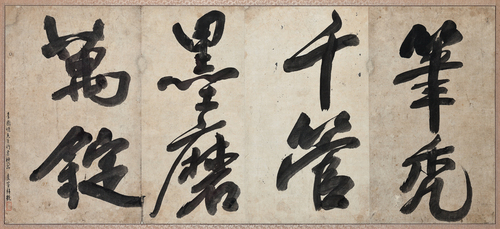 筆禿
千管
墨磨
萬錠